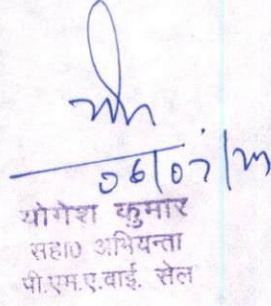 06/07/23
योगेश कुमार
सहा० अभियन्ता
पी.एम.ए.वाई. सेल